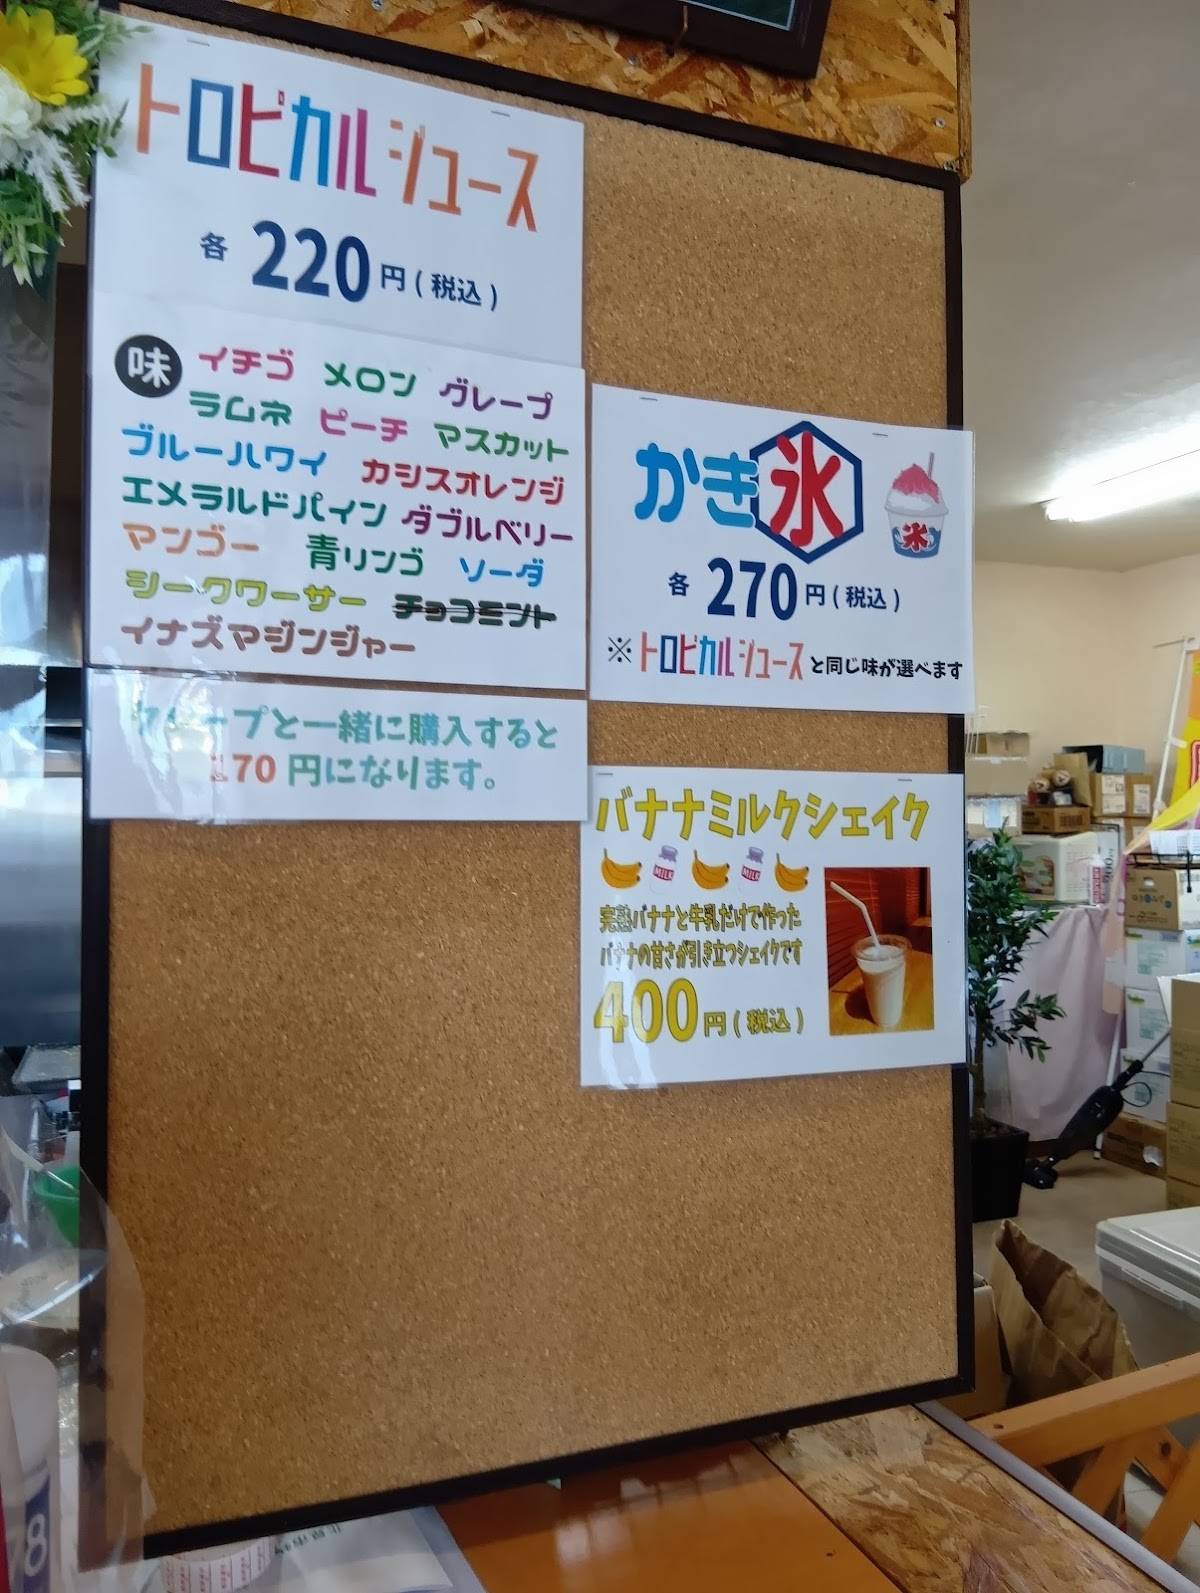 トロピカルジュース
各 220 円 ( 税込 )
味 イチゴ メロン グレープ
ラムネ ピーチ マスカット
ブルーハワイ カシスオレンジ
エメラルドパイン ダブルベリー
マンゴー 青リンゴ ソーダ
シークワーサー チョコミント
イナズマジンジャー
クレープと一緒に購入すると
170 円になります。
かき氷
氷
各 270 円 ( 税込 )
※ トロピカルジュース と同じ味が選べます
バナナミルクシェイク
MILK MILK
完熟バナナと牛乳だけで作った
バナナの甘さが引き立つシェイクです
400 円 ( 税込 )
78